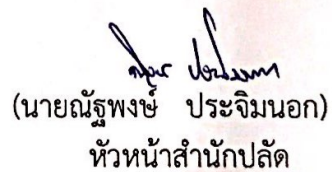 (นายณัฐพงษ์ ประจิมนอก)
หัวหน้าสำนักปลัด